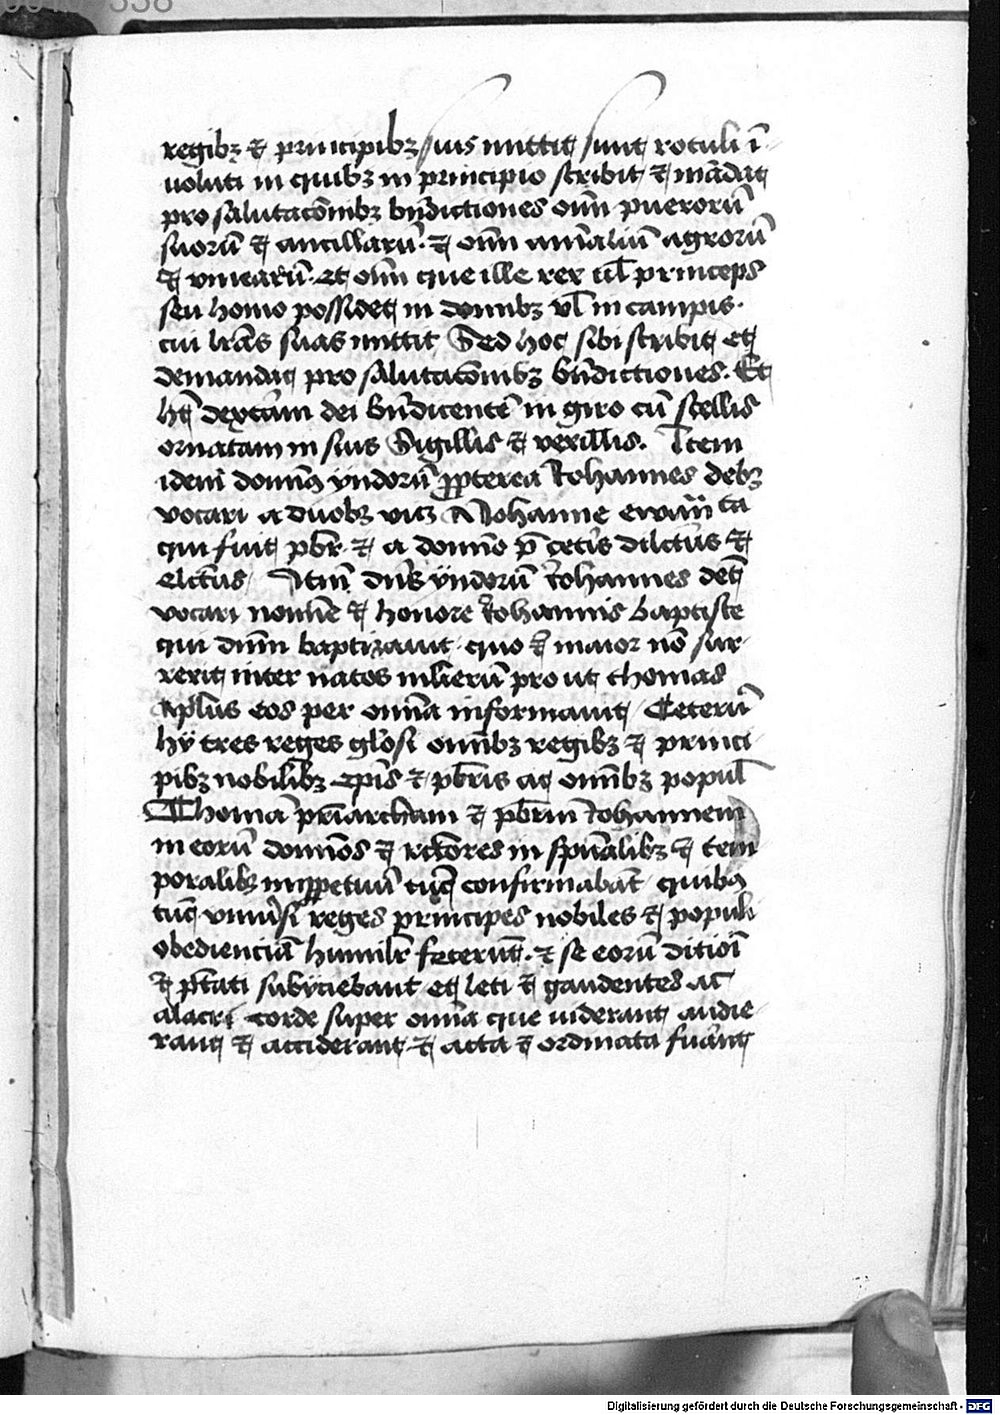 regibꝫ ⁊ principibꝫ suis mittit sunt rotuli ī
uoluti in quibꝫ in principio scribit ⁊ mādat
pro salutacōnibꝫ bn̄dictiones om̄ puerorū
suorū ⁊ ancillarū · ⁊ om̄ aīaliū agrorū
⁊ vinearū · et om̄ que ille rex ul̄ princeps
seu homo possidet in domibꝫ vl̄ in campis ·
cui lr̄as suas mittit Sed hoc sibi scribit et
demandat pro salutacōnibꝫ bn̄dictiones · Et
ht̄ dextām dei bn̄dicentē in giro cū stellis
ornatam in suis Sigillis ⁊ vexill̄is · Item
idem domin9 yndorū ꝓpterea Iohannes debꝫ
vocari a duobꝫ viꝫ A Iohanne ewāīīsta
qui fuit pb̄r · ⁊ a domīo p̄ cet̄is dilc̄tus ⁊
elc̄tus Itm̄ dn̄s ÿndorū Iohannes det̄
vocari nomīe ⁊ honore Iohannis baptiste
qui dn̄m baptizauit · quo maior nō sur-
rexit inter natos mlīerū pro ut thomas
Apl̄us eos per om̄ia informauit Ceterū
hÿ tres reges gl̓osi om̄ibꝫ regibꝫ ⁊ princi-
pibꝫ nobilibꝫ ep̄is ⁊ pb̄ris ac om̄ibꝫ popul̄
Thomā pr̄iarcham ⁊ pb̄rm Iohannem
in eorū domīos ⁊ rc̄tores in sp̄ualibꝫ ⁊ tem
poralibꝫ inꝑpetuū tūc confirmabāt quib9
tūc vniūsi reges principes nobiles ⁊ populi
obedienciā humilr̄ fecerūt · ⁊ se eorū ditiōī
⁊ pt̄ati subÿciebant et leti ⁊ gaudentes ac
alacri corde super om̄ia que uiderant audie-
rant ⁊ acciderant ⁊ acta ⁊ ordinata fuānt
Digitalisierung gefördert durch die Deutsche Forschungsgemeinschaft - DFG